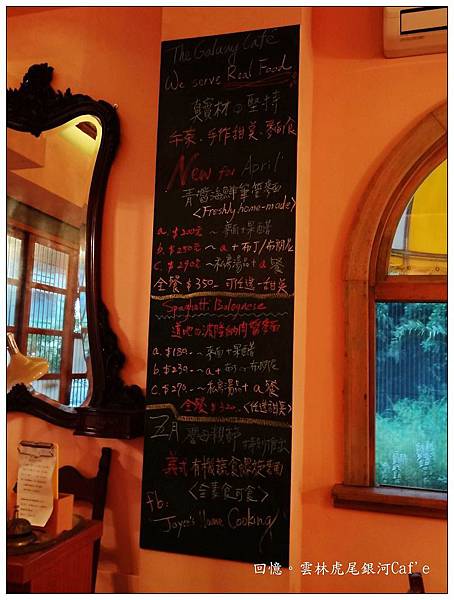 The Galaxy Café
We serve Real Food
真食材の堅持
手作甜美
New for April
青醬海鮮筆管麵
<Freshly home-made>
a. $200元 ~ 麵+果醋
b. $250元 ~ a+布丁/布朗尼
c. $290元 ~ 私房湯品+a餐
全餐 $350 可任選一甜美
Spaghetti Bolognese
道地の波隆納肉醬麵
a. $180 ~ 麵+果醋
b. $230 ~ a+布丁
c. $270 ~ 私房湯品+a餐
全餐 $320 <任選甜美>
五月 節 特別推出
義式有機蔬食
<全素食可食>
fb:
Joyce's Home Cooking
回憶。雲林虎尾銀河Caf'e